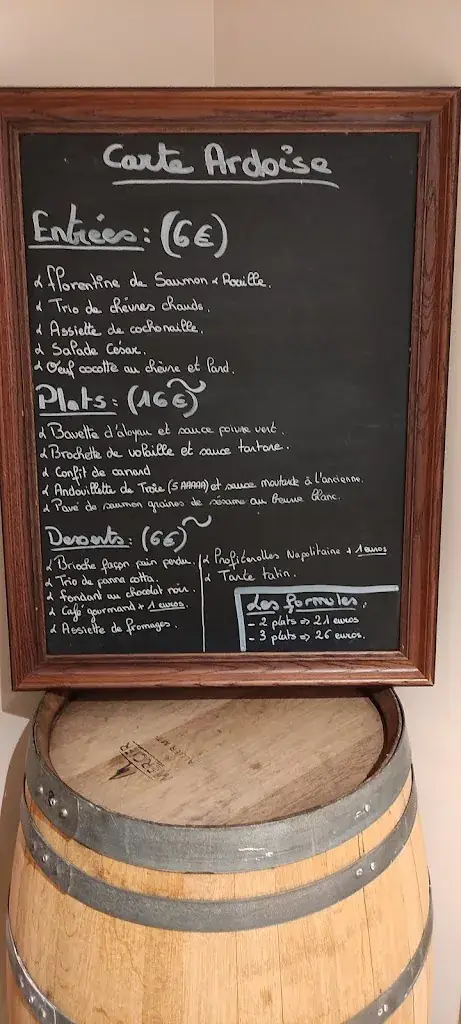 Carte Ardoise
Entrées : (6€)
α Florentine de Saumon & Rouille.
α Trio de chèvres chauds.
α Assiette de cochonaille.
α Salade César.
α Oeuf cocotte au chèvre et lard.
Plats : (16€)
α Bavette d'aloyau et sauce poivre vert.
α Brochette de volaille et sauce tartare.
α Confit de canard
α Andouillette de Troie (5 AAAAA) et sauce moutarde à l'ancienne.
α Pavé de saumon graines de sésame au beurre blanc.
Desserts : (6€)
α Brioche façon pain perdu.
α Trio de panna cotta.
α Fondant au chocolat noir.
α Café gourmand + 1 euros.
α Assiette de fromages.
α Profiterolles Napolitaine + 1 euros
α Tarte tatin.
Les formules.
- 2 plats => 21 euros
- 3 plats => 26 euros.
MERCIER